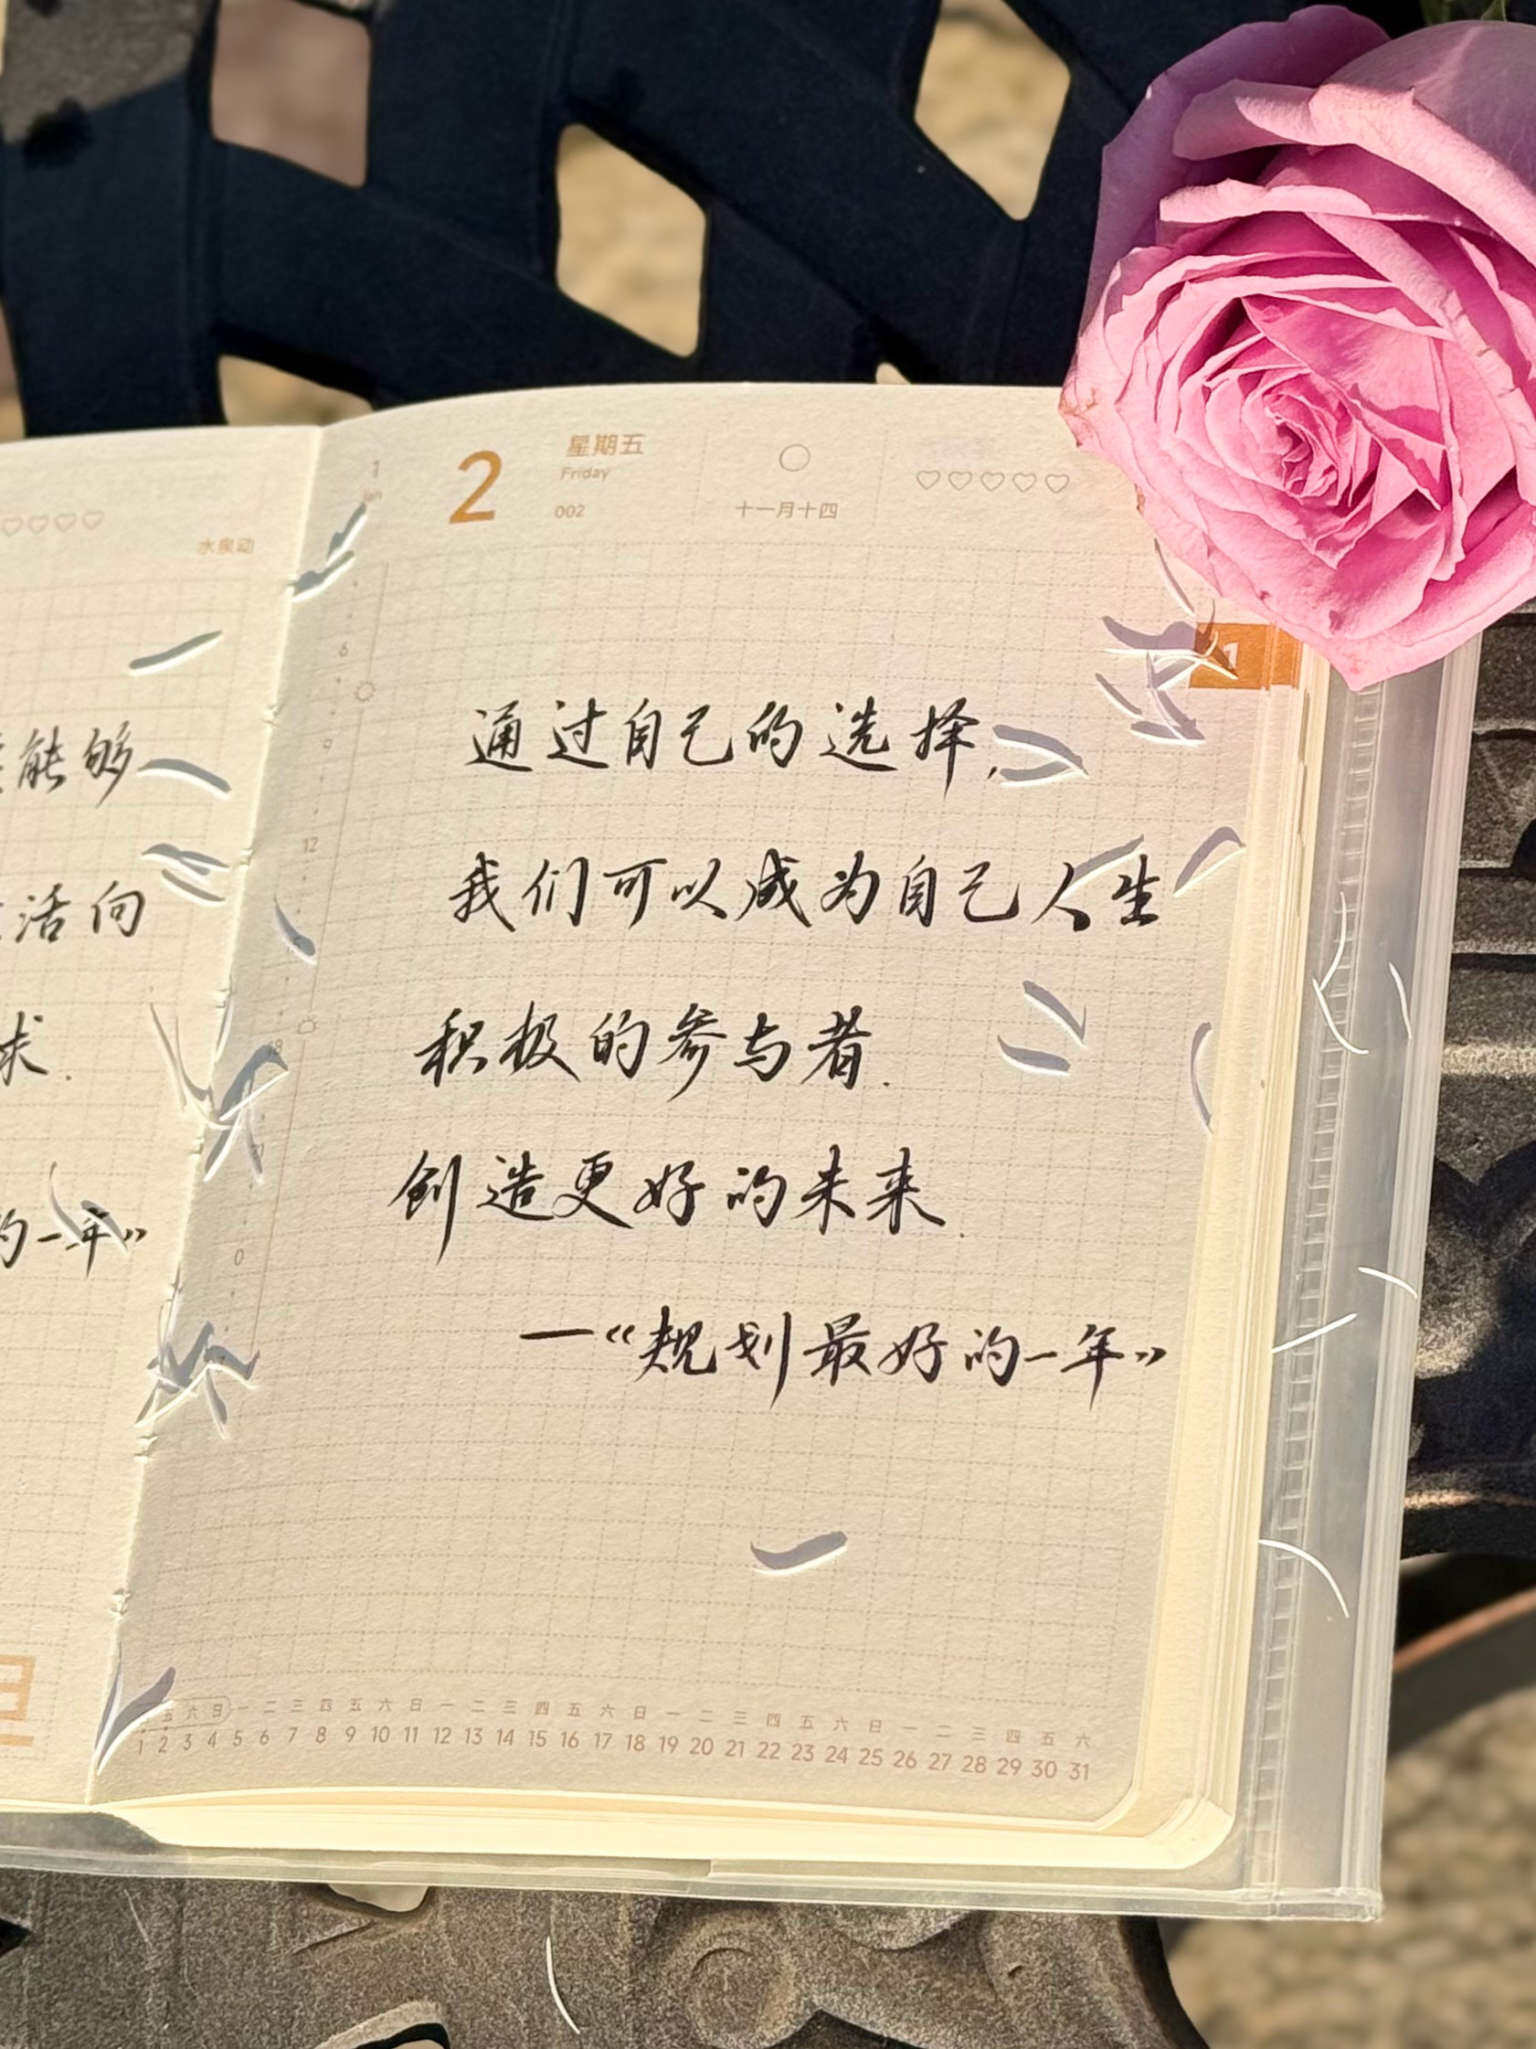 水泉动
能够
活向
求.
的一年》
旦
1
Jan
2
星期五
Friday
002
十一月十四
1
6
9
12
18
通过自己的选择,
我们可以成为自己人生
积极的参与者.
创造更好的未来.
—《规划最好的一年》
0
五 六 日 一 二 三 四 五 六 日 一 二 三 四 五 六 日 一 二 三 四 五 六 日 一 二 三 四 五 六
1 2 3 4 5 6 7 8 9 10 11 12 13 14 15 16 17 18 19 20 21 22 23 24 25 26 27 28 29 30 31